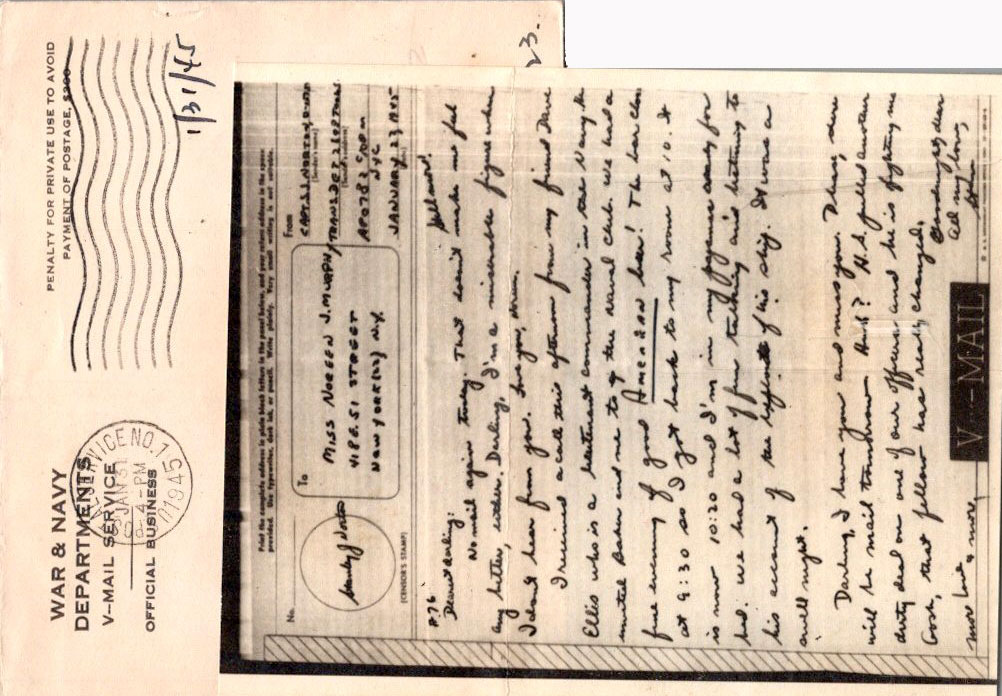 PENALTY FOR PRIVATE USE TO AVOID
PAYMENT OF POSTAGE, $300
1/31/45
23.
WAR & NAVY
DEPARTMENTS
V-MAIL SERVICE
OFFICIAL BUSINESS
SERVICE NO. 1
JAN 31
4-PM
1945
Print the complete address in plain block letters in the panel below, and your return address in the space
provided. Use typewriter, dark ink, or pencil. Write plainly. Very small writing is not suitable.
No.
(CENSOR'S STAMP)
To
MISS NOREEN J. MURPHY
418 E. 51 STREET
NEW YORK (22) N.Y.
From
CAPT. S.J. NORTON
(Sender's name)
APO 782 c/o PM
NYC
JANUARY 23 1945
#76
Dearest darling:
No mail again today. That doesn't make me feel
any better, either. Darling, I'm a miserable figure when
I don't hear from you. Love you, dream.
I received a call this afternoon from my friend Dave
Ellis who is a lieutenant commander in the Navy. He
invited Baker and me to the naval club. We had a
fine evening of good AMERICAN beer! The bar closes
at 9:30 so I got back to my room at 10. It
is now 10:20 and I'm in my pajamas ready for
bed. We had a lot of fun talking and listening to
his account of the exploits of his ship. It was a
swell night.
Darling, I love you and miss you. dear
will be mail tomorrow Huh? H.S. pulled another
dirty deal on one of our officers and he is fighting mad
Gosh, that fellow has really changed.
Goodnight, dear
All my love,
more love & more
V···—MAIL